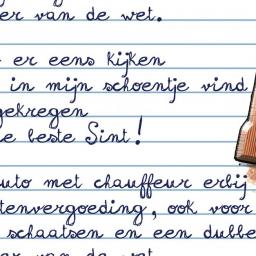 er van de wet.
er eens kijken
in mijn schoentje vind
gekregen
e beste Sint!
uto met chauffeur erbij
tenvergoeding, ook voor
schaatsen en een dubbe
er van de wet